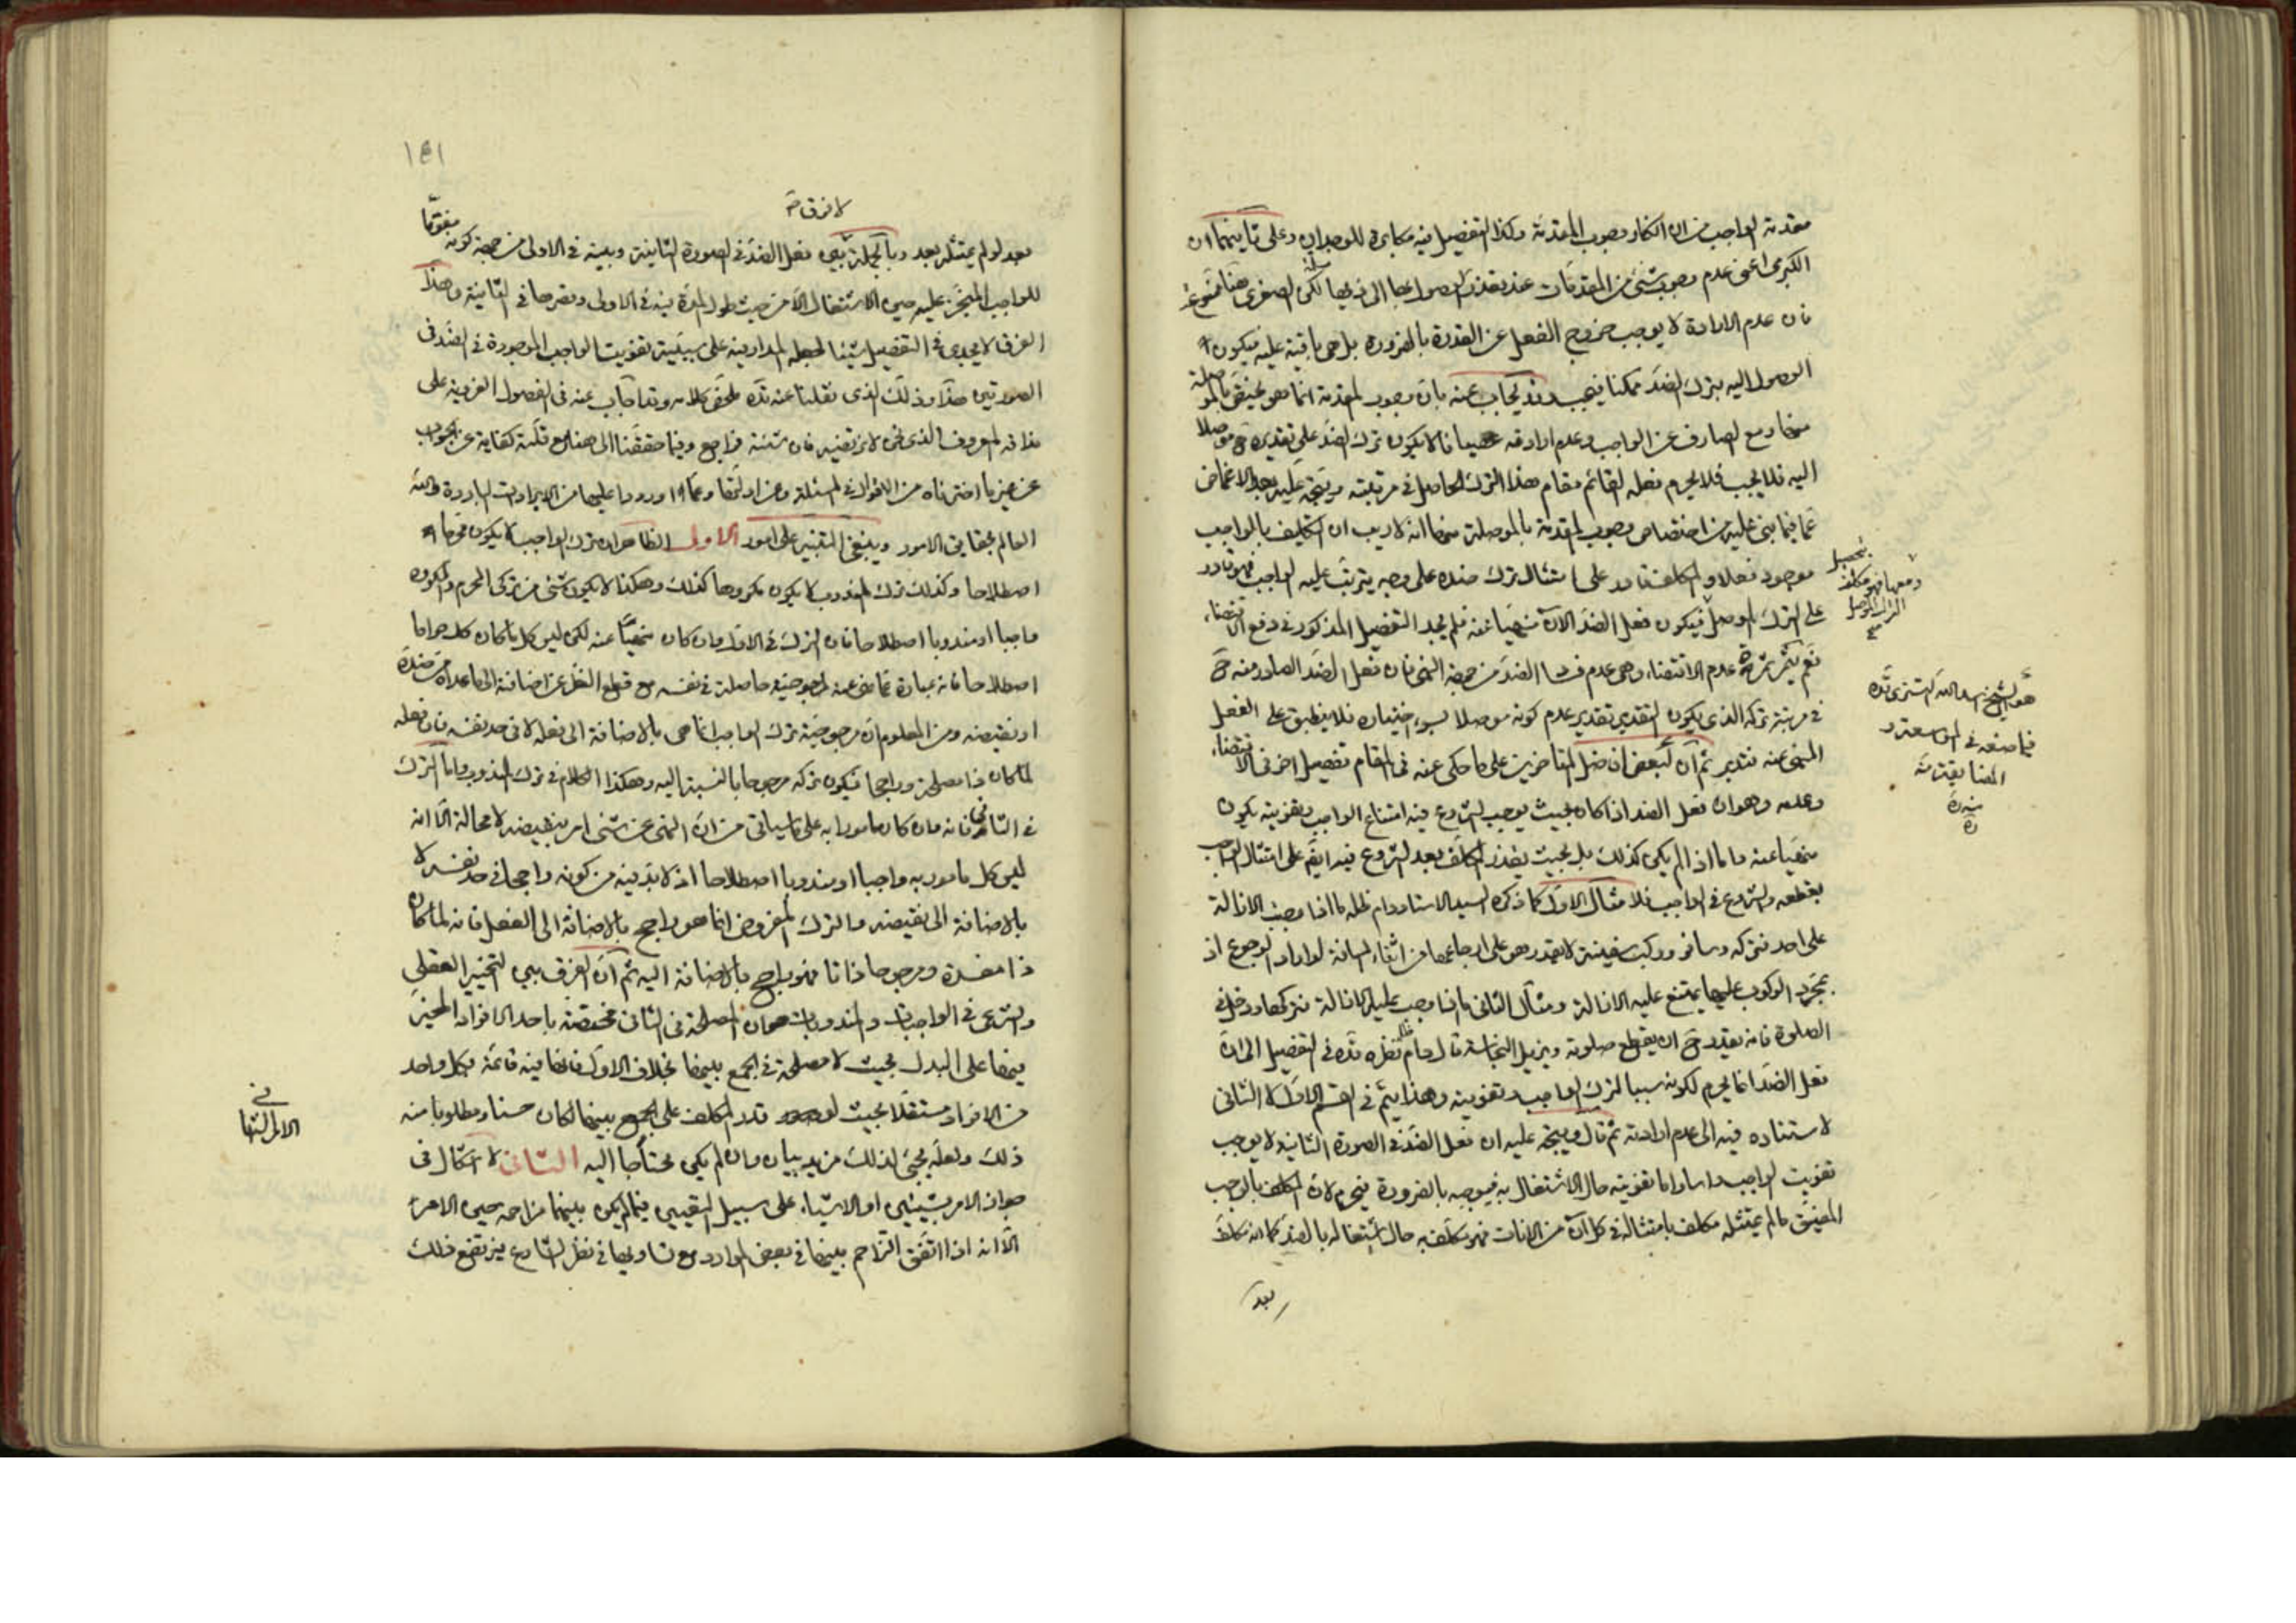 مقدمة الواجب من ان انكار وجوب المقدمة وكذا التفصيل فيه مكابرة للوجدان وعلى ثانيهما ان
الكبرى اعنى عدم وجوب شئ من المقدمات عند تعذر الوصول بها الى ذيها مسلمة لكن الصغرى هنا ممنوعة
فان عدم الارادة لا يوجب خروج الفعل عن القدرة بالضرورة بل هى باقية عليه فيكون
الوصول اليه بترك الضد ممكنا فيجب وقد يجاب عنه بان وجوب المقدمة انما هو يختص بالموصلة
منها ومع الصارف عن الواجب وعدم ارادته عصيانا لا يكون ترك الضد على تقديره ح موصلا
اليه فلا يجب فلا يحرم فعله القائم مقام هذا الترك الحاصل فى مرتبته ويتجه عليه بعد الاغماض
عما فيما بنى عليه من اختصاص وجوب المقدمة بالموصلة منها انه لا ريب ان التكليف بالواجب
موجود فعلا والمكلف قادر على امتثال ترك ضده على وجه يترتب عليه الواجب فهو قادر
على الترك الموصل فيكون فعل الضد الآن منهيا عنه فلم يجد التفصيل المذكور فى دفع الاقتضاء
نعم يتم ثمرة عدم الاقتضاء وهى عدم فساد الضد من جهة النهى فان فعل الضد الصادر منه ح
فى مرتبة تركه الذى يكون التقدير تقدير عدم كونه موصلا بسوء اختياره فلا ينطبق على الفعل
المنهى عنه فتدبر ثم ان لبعض افاضل المتاخرين على ما حكى عنه فى المقام تفصيل اخر فى الاقتضاء
وعدمه وهو ان فعل الضد اذا كان بحيث يوجب الشروع فيه امتناع الواجب وتفويته يكون
منهيا عنه واما اذا لم يكن كذلك بل بحيث يقدر المكلف بعد الشروع فيه ايضا على امتثال الواجب
بقطعه والشروع فى الواجب فلا مثال الاول كما ذكره السيد الاستاد دام ظله ما اذا وجبت الازالة
على احد فتركه وسافر وركب سفينة لا يقدر هو على ارجاعها من اثناء المسافة لو اراد الرجوع اذ
بمجرد الركوب عليها يمتنع عليه الازالة ومثال الثانى ما اذا وجب عليه الازالة فتركها ودخل فى
الصلوة فانه يقدر ح ان يقطع صلوته ويزيل النجاسة قال دام ظله نظره قده فى التفصيل الى ان
فعل الضد انما يحرم لكونه سببا لترك الواجب وتفويته وهذا يتم فى القسم الاول لا الثانى
لاستناده فيه الى عدم ارادته ثم قال ويتجه عليه ان فعل الضد فى الصورة الثانية لا يوجب
تفويت الواجب راسا واما تفويته حال الاشتغال به فيوجبه بالضرورة فيحرم لان المكلف بالواجب
المضيق ما لم يمتثله مكلف بامتثاله فى كل آن من الانات فهو مكلف به حال اشتغاله بالضد كما انه مكلف
بعد
ومعها فهو مكلف بتحصيل
الترك الموصل
صح
هو الشيخ اسد الله التسترى قده
فيما صنفه فى المواسعة و
المضايقة منه
١٤١
لا فرق ح
بعد لو لم يمتثله بعد وبالجملة بين فعل الضد فى الصورة الثانية وبينه فى الاولى من جهة كونه مفوتا
للواجب المنجز عليه حين الاشتغال الا من حيث طول المدة فيه فى الاولى وقصرها فى الثانية وهذا
الفرق لا يجدى فى التفصيل شيئا لجعله المدار فيه على سببية تفويت الواجب الموجودة فى الضد فى
الصورتين هذا وذلك الذى نقلنا عنه قده ملخص كلامه وقد اجاب عنه فى الفصول الغروية على
مذاقه المعروف الذى نحن لا نرتضيه فان شئت فراجع وفيما حققنا الى هنا مع قلته كفاية عن الجواب
عن غير ما اخترناه من الاقوال فى المسئلة وعن ادلتها وعما اوردوا عليها من الايرادات الباردة والله
العالم بحقايق الامور وينبغى التنبيه على امور الاول الظاهر ان ترك الواجب لا يكون محرما
اصطلاحا وكذلك ترك المندوب لا يكون مكروها كذلك وهكذا لا يكون شئ من تركى المحرم والمكروه
واجبا او مندوبا اصطلاحا فان الترك فى الاول وان كان منهيا عنه لكن ليس كل ما كان كك حراما
اصطلاحا فانه عبارة عما نهى عنه لمرجوحية حاصلة فى نفسه مع قطع النظر عن اضافته الى ما عداه من ضده
او نقيضه ومن المعلوم ان مرجوحية ترك الواجب انما هى بالاضافة الى فعله لا فى حد نفسه فان فعله
لما كان ذا مصلحة وراجحا فيكون تركه مرجوحا بالنسبة اليه وهكذا الكلام فى ترك المندوب واما الترك
فى الثانى فانه وان كان مامورا به على ما سياتى من ان النهى عن شئ امر بنقيضه لا محالة الا انه
ليس كل مامور به واجبا او مندوبا اصطلاحا اذ لا بد فيه من كونه راجحا فى حد نفسه لا
بالاضافة الى نقيضه والترك المفروض انما هو راجح بالاضافة الى الفعل فانه لما كان
ذا مفسدة ومرجوحا ذاتا فهو راجح بالاضافة اليه ثم ان الفرق بين التخيير العقلى
والشرعى فى الواجبات والمندوبات هو ان المصلحة فى الثانى مختصة باحد الافراد المخير
فيها على البدل بحيث لا مصلحة فى الجمع بينها بخلاف الاول فانها فيه قائمة بكل واحد
من الافراد مستقلا بحيث لو قدر المكلف على الجمع بينها لكان حسنا ومطلوبا منه
ذلك ولعله يجئ لذلك مزيد بيان وان لم يكن محتاجا اليه الثانى لا اشكال فى
جواز الامر بشيئين او الاشياء على سبيل التعيين فيما لم يكن بينهما مزاحمة حين الامر
الا انه اذا اتفق التزاحم بينهما فى بعض الموارد مع تساويهما فى نظر الشارع يرتفع ذلك
فى
الامر الثانى